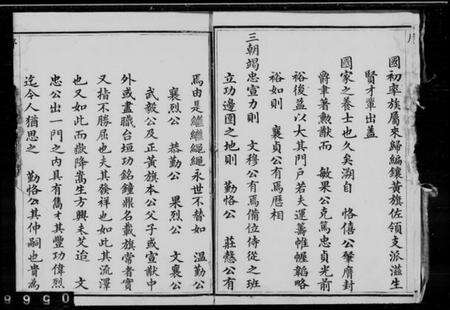 國初率族屬來歸編鑲黃旗佐領支派滋生
賢才輩出蓋
國家之養士也久矣溯自 恪僖公肇膺封
爵聿著勲猷而 敏果公克篤忠貞光前
裕後蓋以大其門戸若夫運籌帷幄韜略
裕如則 襄貞公有焉歴相
三朝竭忠宣力則 文穆公有焉備位侍從之班
立功邊圉之地則 勤恪公 莊慤公有
焉由是繼繼繩繩永世不替如 溫勤公
襄烈公 恭勤公 果烈公 文襄公
武毅公及正黃旗本公父子或宣猷中
外或盡職台垣功銘鐘鼎名載旗常者實
又指不勝屈也夫其發祥也如此其流澤
也又如此而嶽降嵩生方興未艾迨 文
忠公出一門之內具有雋才其豐功偉烈
迄今人猶思之 勤恪公其仲嗣也貴爲
05566